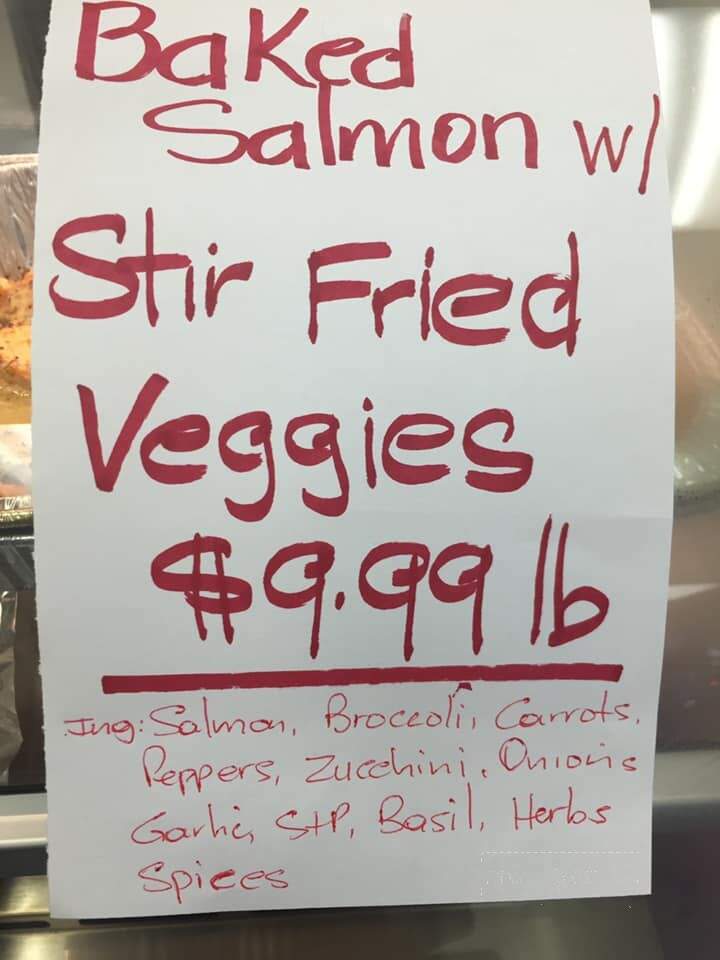 Baked
Salmon w/
Stir Fried
Veggies
$9.99 lb
Ing: Salmon, Broccoli, Carrots,
Peppers, Zucchini, Onions
Garlic, S+P, Basil, Herbs
Spices